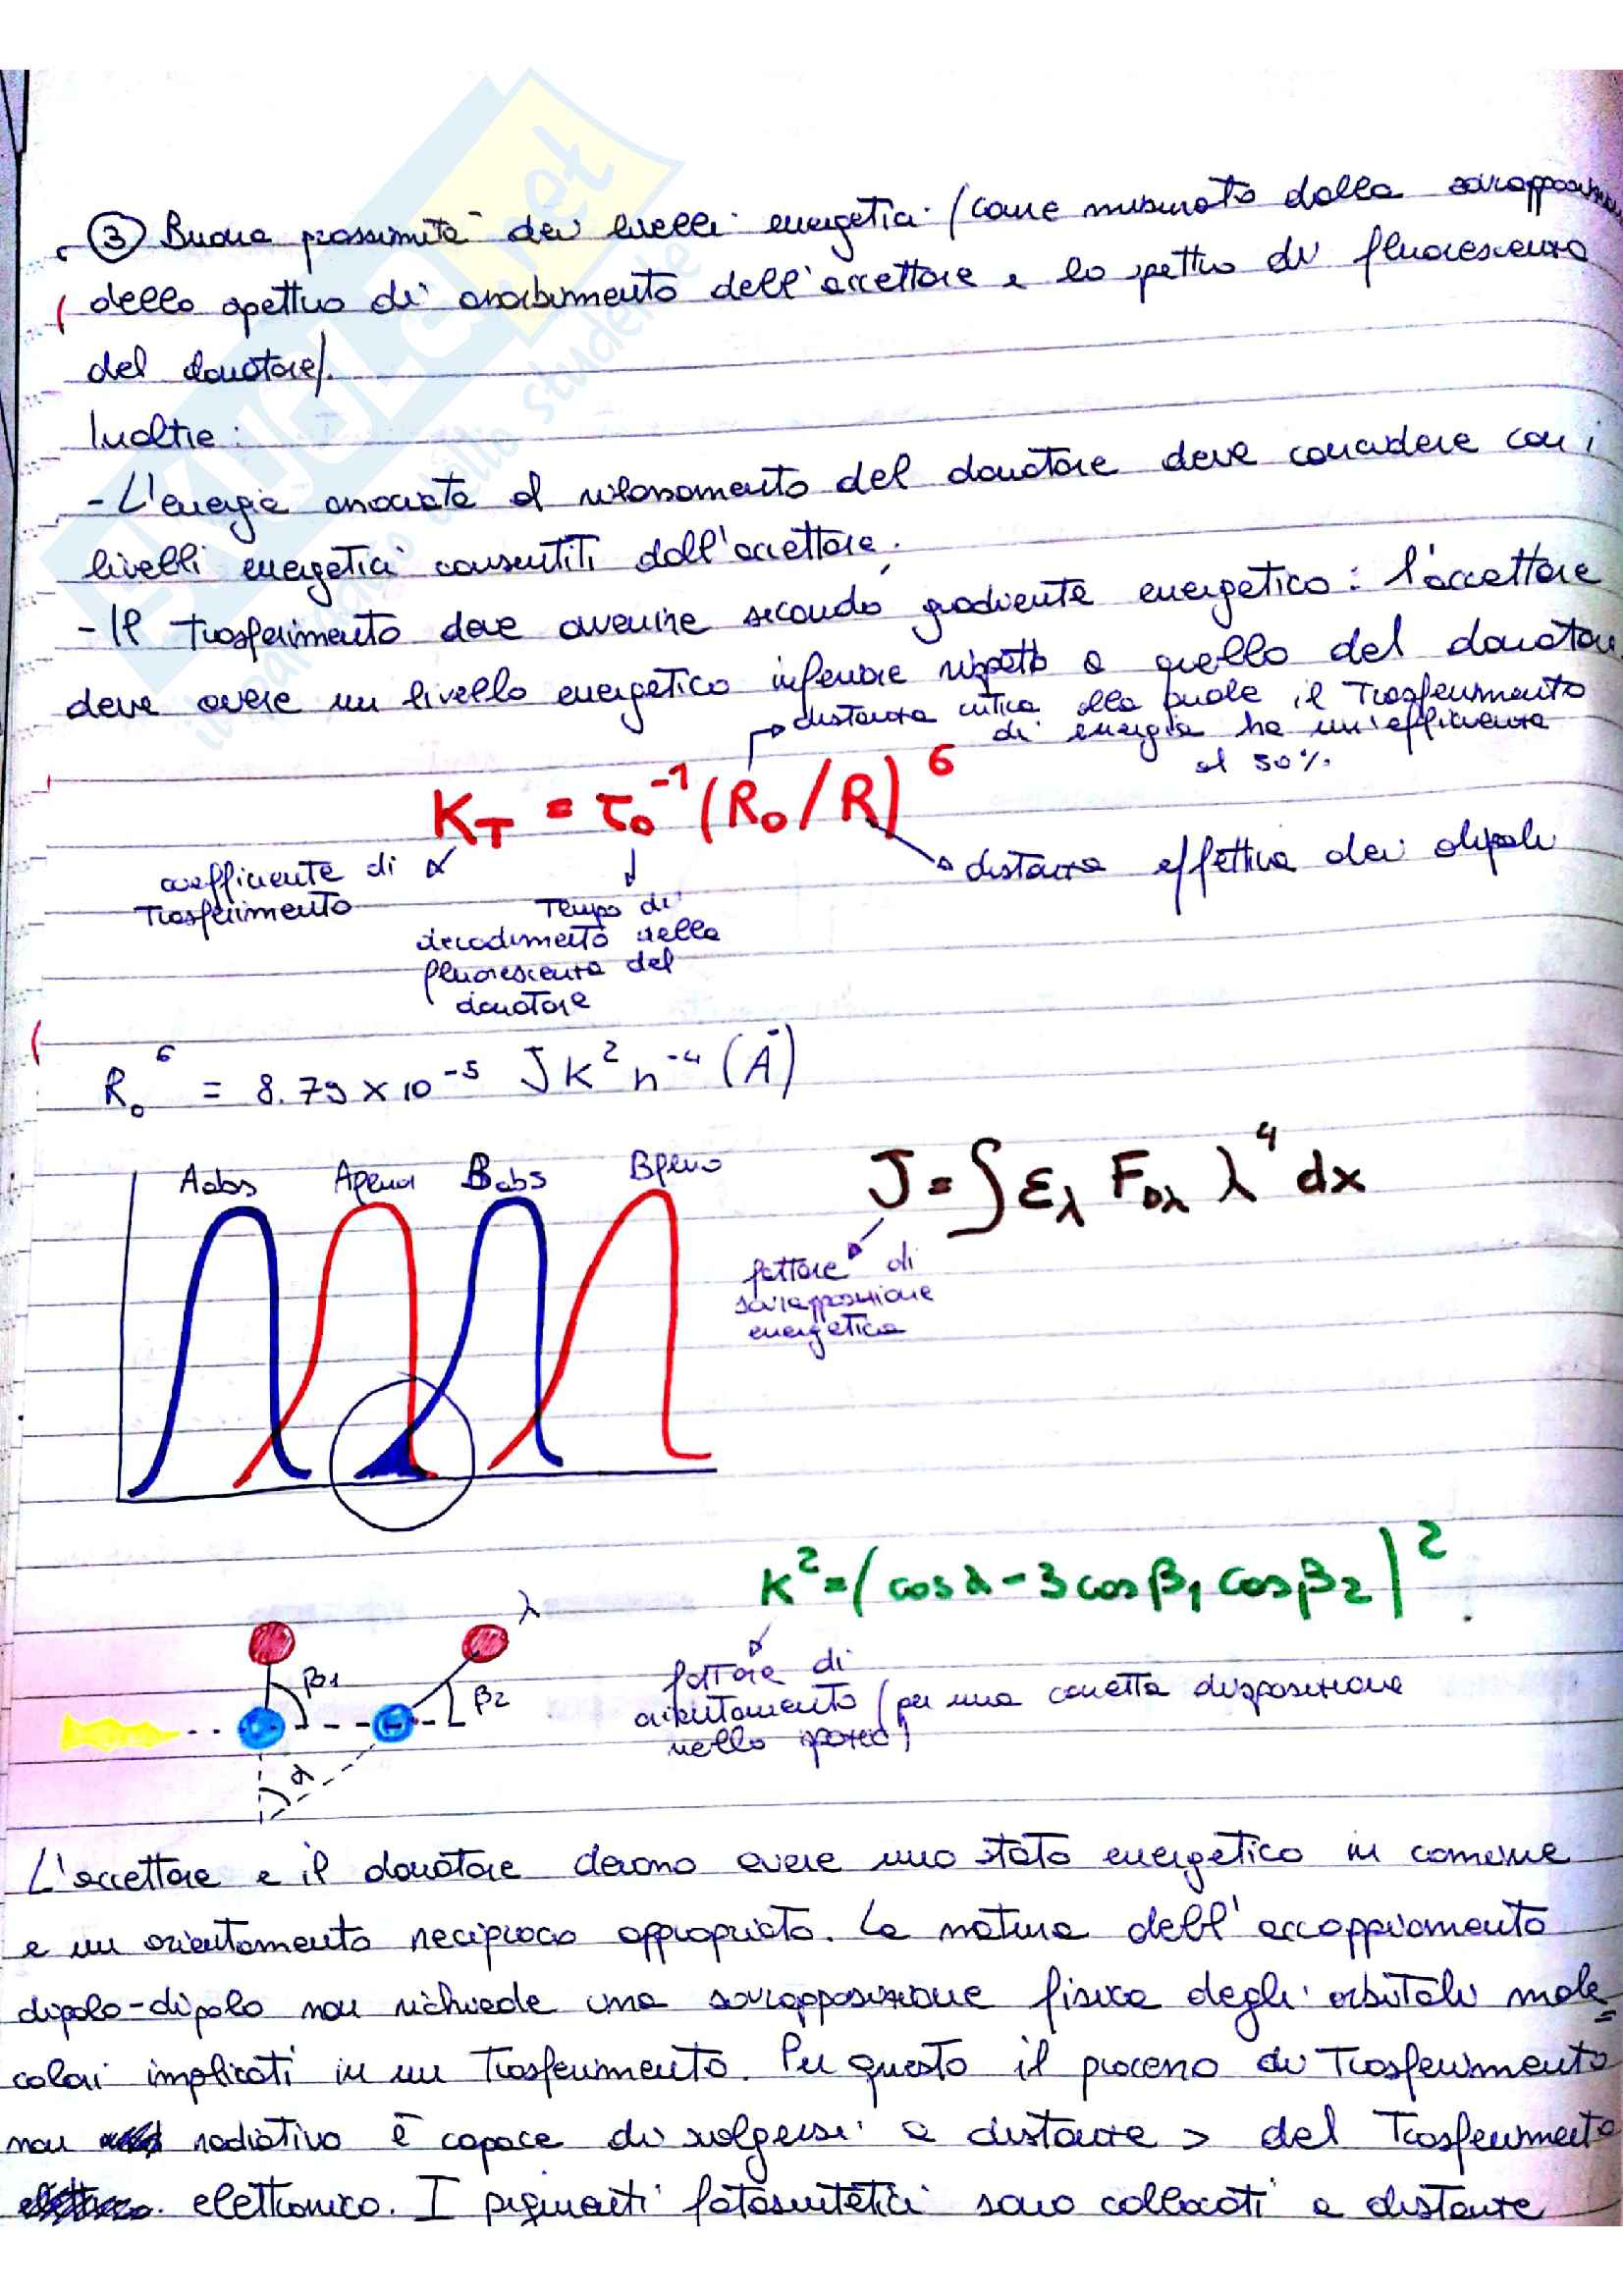 ③ Buona prossimità dei livelli energetici (come misurato dalla
dello spettro di assorbimento dell'accettore e lo spettro di fluorescenza
del donatore).
Inoltre:
- L'energia associata al rilassamento del donatore deve coincidere con i
livelli energetici consentiti dall'accettore.
- Il trasferimento deve avvenire secondo gradiente energetico: l'accettore
deve avere un livello energetico inferiore rispetto a quello del donatore
distanza critica alla quale il trasferimento
di energia ha un'efficienza
al 50%.
K_T = τ₀⁻¹ (R₀/R)⁶
coefficiente di
trasferimento
distanza effettiva dei dipoli
Tempo di
decadimento della
fluorescenza del
donatore
R₀⁶ = 8.79 x 10⁻⁵ J K² n⁻⁴ (Å)
Aabs Afluo Babs Bfluo
J = ∫ ε_λ F_Dλ λ⁴ dx
fattore di
sovrapposizione
energetica
K² = (cos λ - 3 cos β₁ cos β₂)²
λ
β1
β2
α
fattore di
orientamento (per una corretta disposizione
nello spazio)
L'accettore e il donatore devono avere uno stato energetico in comune
e un orientamento reciproco appropriato. La natura dell'accoppiamento
dipolo-dipolo non richiede una sovrapposizione fisica degli orbitali mole=
colari implicati in un trasferimento. Per questo il processo di trasferimento
non radiativo è capace di svolgersi a distanze > del trasferimento
elettronico. I pigmenti fotosintetici sono collocati a distanze